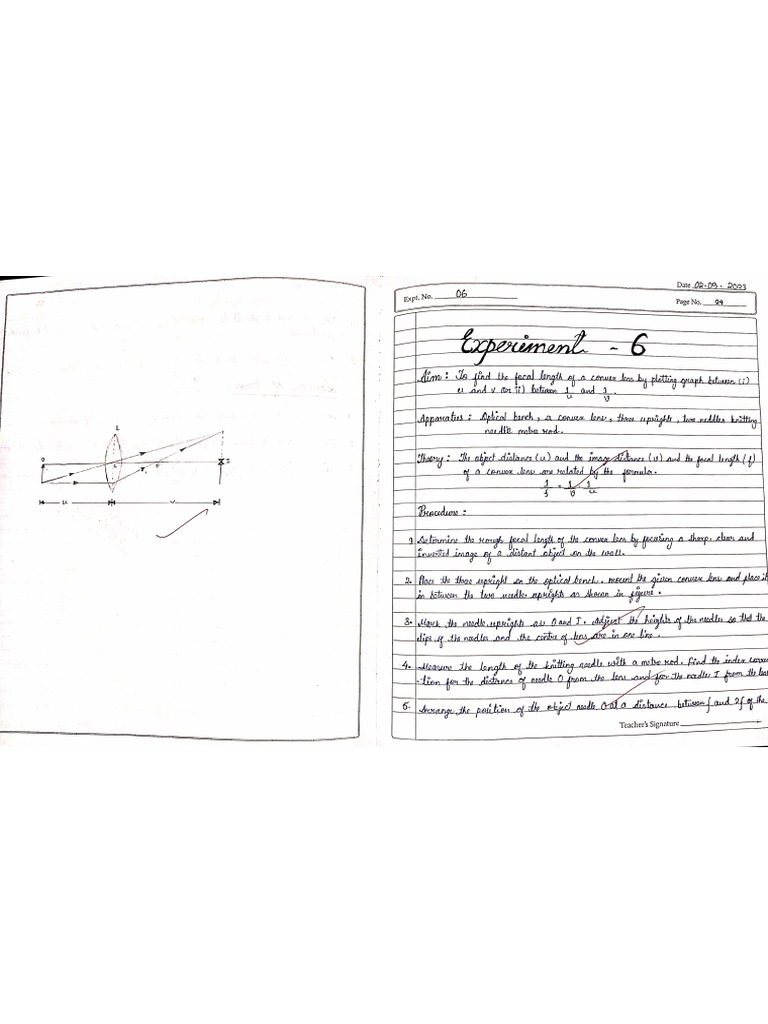 L
O
I
u
v
Expt. No. 06
Date 02-09-2023
Page No. 29
Experiment - 6
Aim : To find the focal length of a convex lens by plotting graph between (i)
u and v or ii) between 1/u and 1/v.
Apparatus : Optical bench, a convex lens, three uprights, two neddles knitting
needle metre rod.
Theory : The object distance (u) and the image distance (v) and the focal length (f)
of a convex lens are related by the formula.
1/f = 1/v - 1/u
Procedure :
1. Determine the rough focal length of the convex lens by focusing a sharp, clear and
inverted image of a distant object on the wall.
2. Place the three upright on the optical bench. mount the given convex lens and place it
in between the two needle uprights as shown in figure.
3. Mark the needle uprights as O and I. Adjust the heights of the needles so that the
tips of the needles and the centre of lens are in one line.
4. Measure the length of the knitting needle with a metre rod. Find the index correc
-tion for the distance of needle O from the lens and for the needle I from the
5. Arrange the position of the object needle O at a distance between f and 2f of the
Teacher's Signature